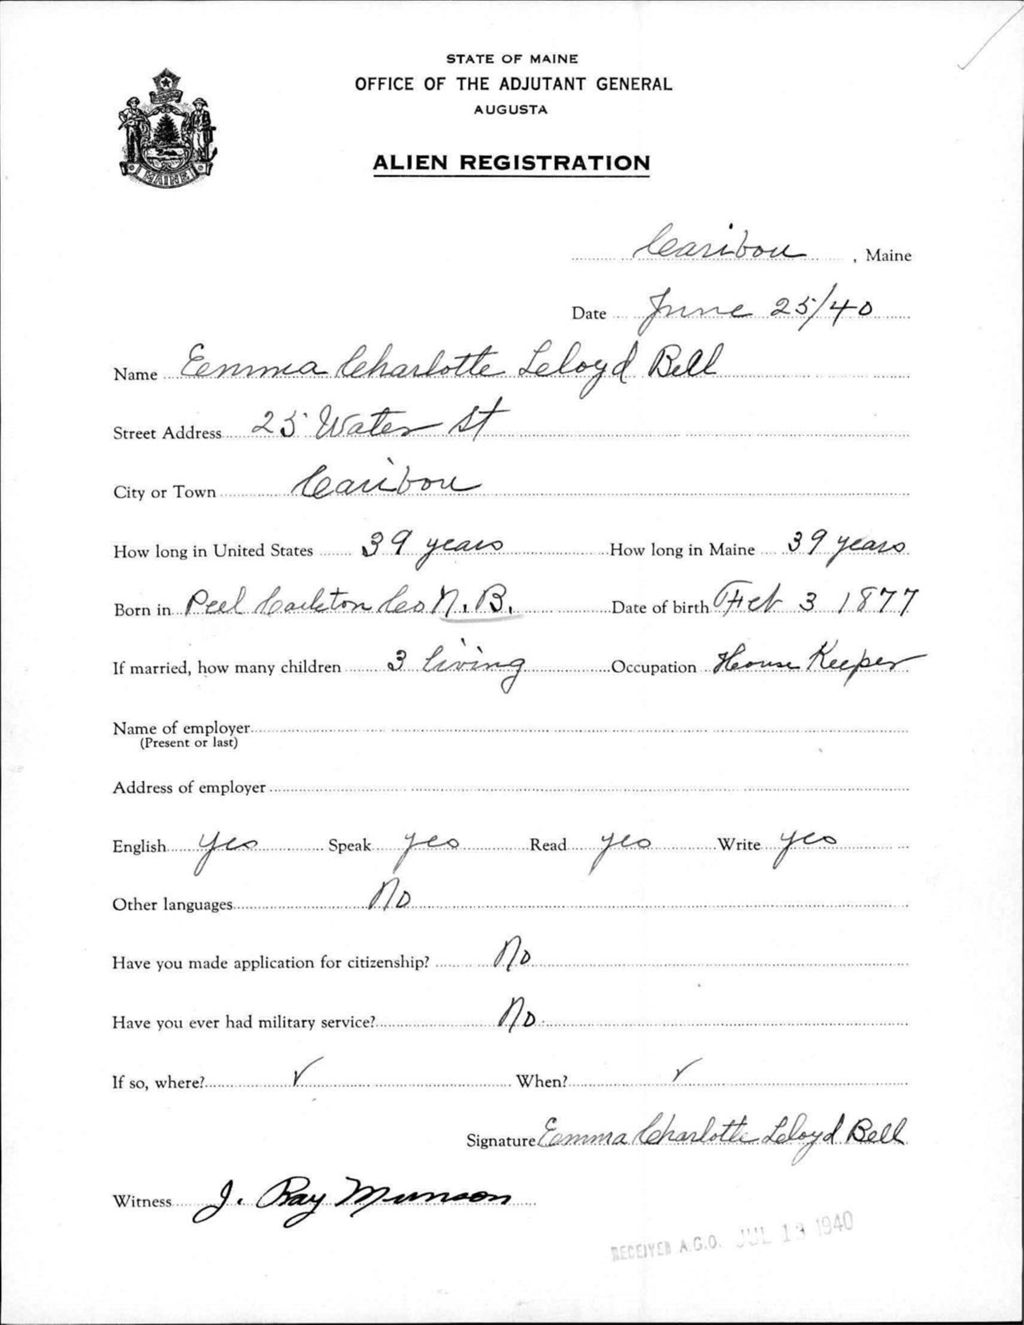 STATE OF MAINE
OFFICE OF THE ADJUTANT GENERAL
AUGUSTA
ALIEN REGISTRATION
MAINE
Caribou, Maine
Date June 25/40
Name Emma Charlotte Leloyd Bell
Street Address 25 Water St
City or Town Caribou
How long in United States 39 years How long in Maine 39 years
Born in Peel Carleton Co N.B. Date of birth Feb 3 1877
If married, how many children 3 living Occupation House Keeper
Name of employer
(Present or last)
Address of employer
English yes Speak yes Read yes Write yes
Other languages No
Have you made application for citizenship? No
Have you ever had military service? No
If so, where? ✓ When? ✓
Signature Emma Charlotte Leloyd Bell
Witness J. Ray Munson
RECEIVED A.G.O. JUL 13 1940